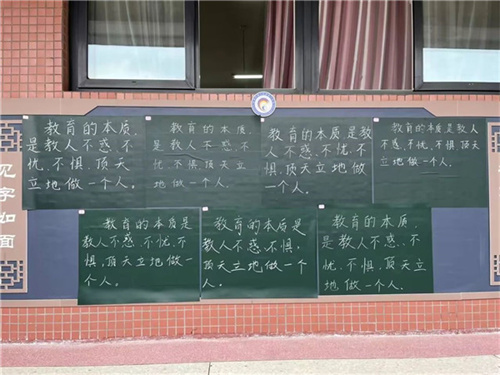 见字如面
教育的本质
是教人不惑、不
忧、不惧、顶天
立地做一个人。
教育的本质,
是教人不惑、不
忧、不惧、顶天立
地做一个人。
教育的本质是教
人不惑、不忧、不
惧、顶天立地做
一个人。
教育的本质是教人
不惑、不忧、不惧、顶天
立地做一个人。
教育的本质是
教人不惑、不忧、不
惧,顶天立地做一
个人。
教育的本质是
教人不惑、不惧、
顶天立地做一个
人。
教育的本质,
是教人不惑、不
忧、不惧、顶天立
地做一个人。